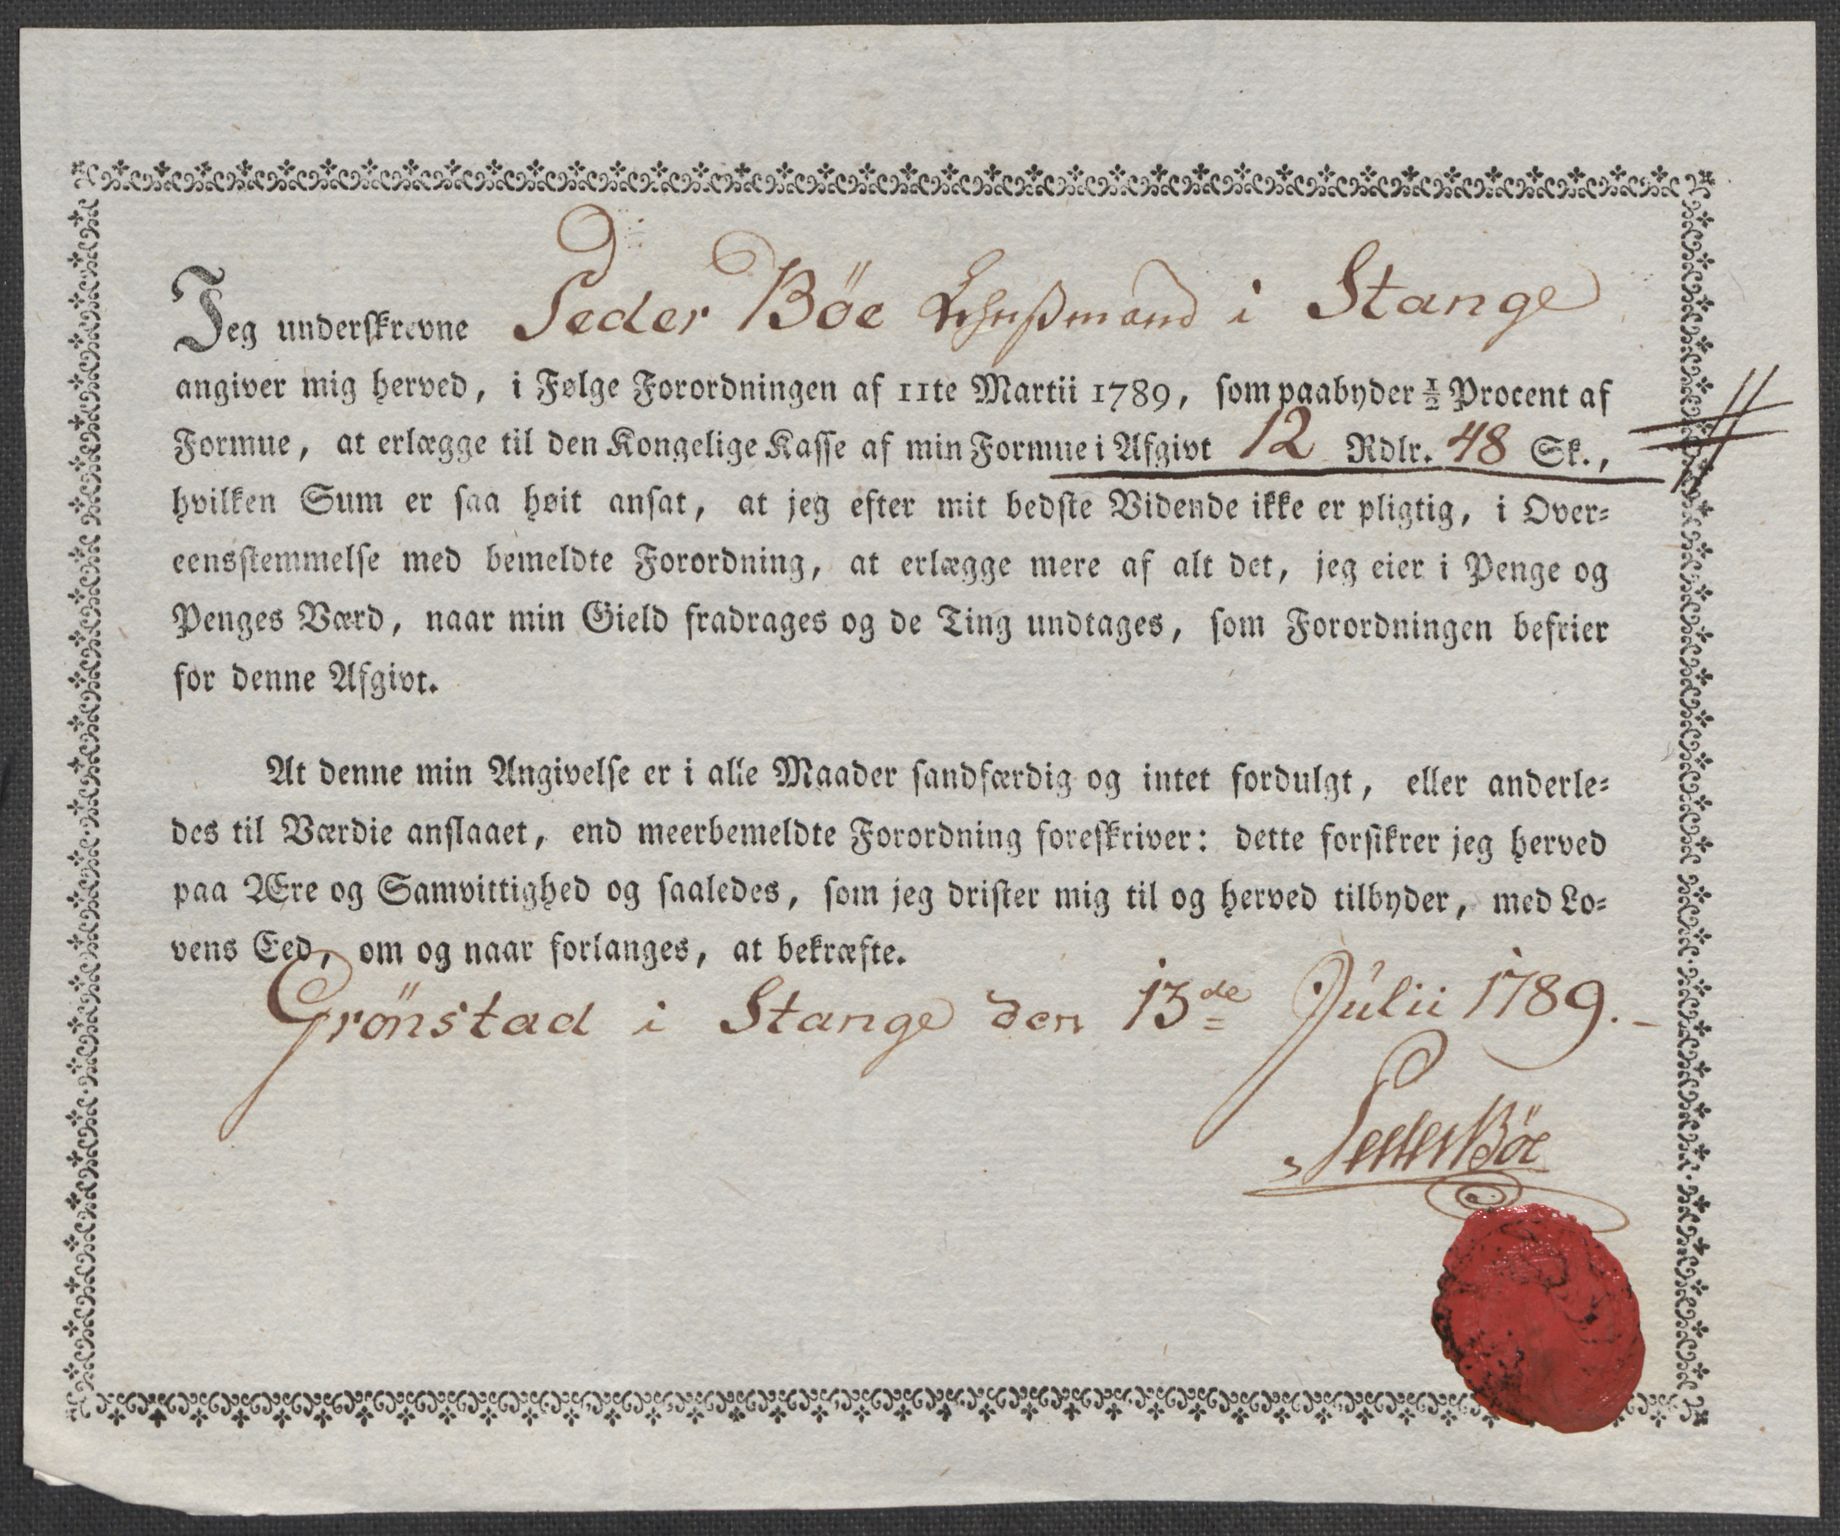 Jeg underskrevne Peder Bøe Lehnßmand i Stange
angiver mig herved, i Følge Forordningen af 11te Martii 1789, som paabyder ½ Procent af
Formue, at erlægge til den Kongelige Kasse af min Formue i Afgivt 12 Rdlr. 48 Sk.,
hvilken Sum er saa høit ansat, at jeg efter mit bedste Vidende ikke er pligtig, i Over-
eensstemmelse med bemeldte Forordning, at erlægge mere af alt det, jeg eier i Penge og
Penges Værd, naar min Gield fradrages og de Ting undtages, som Forordningen befrier
for denne Afgivt.
At denne min Angivelse er i alle Maader sandfærdig og intet fordulgt, eller anderle-
des til Værdie anslaaet, end meerbemeldte Forordning foreskriver: dette forsikrer jeg herved
paa Ære og Samvittighed og saaledes, som jeg drister mig til og herved tilbyder, med Lo-
vens Eed, om og naar forlanges, at bekræfte.
Grönstad i Stange den 13de Julii 1789.
Peder Böe